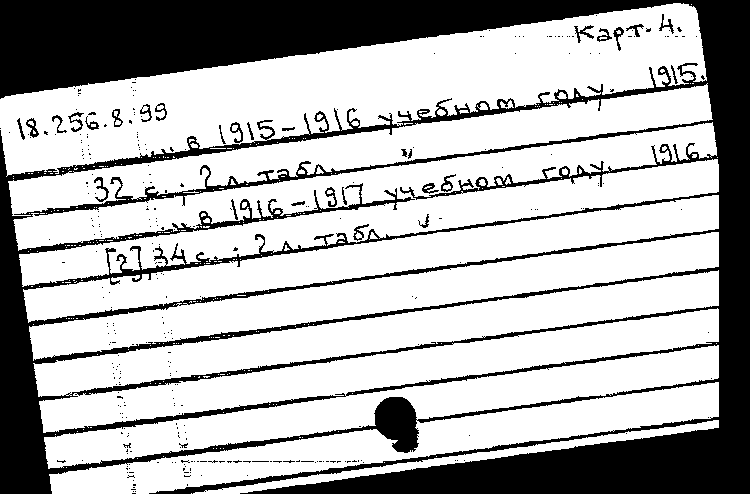 Карт. 4.
18.256.8.99
... в 1915-1916 учебном году. 1915.
32 с.; 2 л. табл. "
... в 1916-1917 учебном году. 1916.
[2], 34 с.; 2 л. табл. v